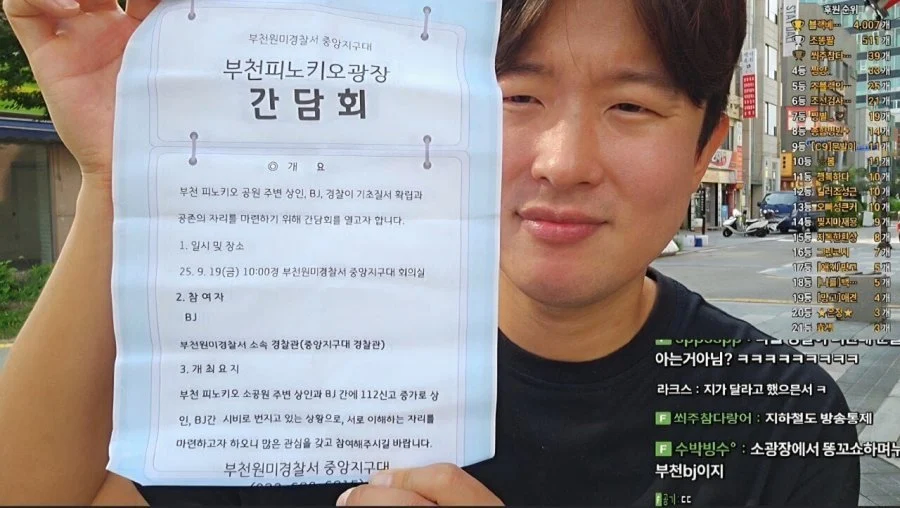 부천원미경찰서 중앙지구대
부천피노키오광장
간담회
◎ 개 요
부천 피노키오 공원 주변 상인, BJ, 경찰이 기초질서 확립과
공존의 자리를 마련하기 위해 간담회를 열고자 합니다.
1. 일시 및 장소
25. 9. 19(금) 10:00경 부천원미경찰서 중앙지구대 회의실
2. 참 여 자
BJ
부천원미경찰서 소속 경찰관(중앙지구대 경찰관)
3. 개 최 요 지
부천 피노키오 소공원 주변 상인과 BJ 간에 112신고 증가로 상
인, BJ간 시비로 번지고 있는 상황으로, 서로 이해하는 자리를
마련하고자 하오니 많은 관심을 갖고 참여해주시길 바랍니다.
부천원미경찰서 중앙지구대
후원 순위
4,007개
511개
39개
4등 33개
5등 25개
6등 조선검사… 21개
7등 19개
8등 14개
9등 11개
10등 11개
11등 행복하다 10개
12등 킬러조성근 10개
13등 오빠성큰커 10개
14등 찢지마재용 9개
15등 8개
16등 7개
17등 5개
18등 5개
19등 4개
20등 3개
21등 3개
아는거아님? ㅋㅋㅋㅋㅋㅋㅋㅋㅋ
라크스 : 지가 달라고 했으믄서 ㅋ
F 쐬주참다랑어 : 지하철도 방송통제
F 수박빙수° : 소광장에서 똥꼬쇼하며누
부천bj이지
F 공기 : ㄸ